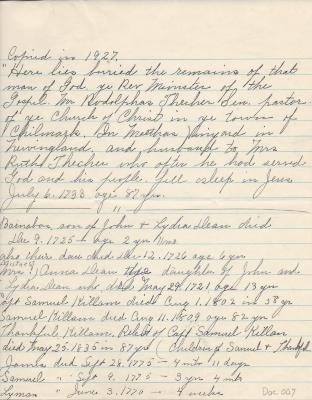 Copied in 1927.
"Here lies buried the remains of that
man of God ye Rev. Minister of the
Gospel. Mr Rodolphas Thecher Sen. pastor
of ye Church of Christ in ye town of
Chilmark. In Matthas Vinyard in
Newingland, and husband to Mrs
Ruth Thecher who after he had served
God and his people. fell asleep in Jesus
July 6. 1733 age 87 yrs.
"
Barnabas, son of John & Lydia Dean died
Dec 9. 1725 - age 2 yr
also their dau died Dec 12. 1726 age 6 yrs
Mrs Anna Dean daughter of John and
Lydia Dean who died May 29 1721 age 13 yrs
Capt Samuel Killam died Aug 1. 1802 in 38 yr
Samuel Killam died Aug 11. 1809 age 82 yrs
Thankful Killam, Relect of Capt Samuel Killam
died May 25. 1835 in 87 yr (Children of Samuel & Thankful
died Sept 28. 1775 - 4 mts 11 days
Samuel " Sept 9. 1775 - 3 yrs 4 mts
Lyman " June 3. 1770 - 4 weeks
Doc 007